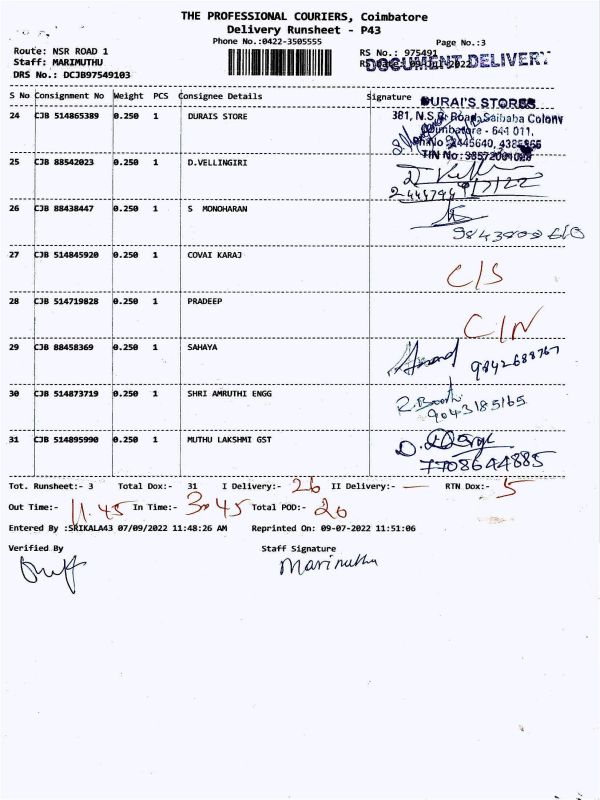 THE PROFESSIONAL COURIERS, Coimbatore
Delivery Runsheet - P43
Phone No.:0422-3505555
Page No.:3
Route: NSR ROAD 1
RS No.: 975491
Staff: MARIMUTHU
DOCUMENT DELIVERY
DRS No.: DCJB97549103
S No Consignment No Weight PCS Consignee Details Signature
DURAI'S STORES
24 CJB 514865389 0.250 1 DURAIS STORE
381, N.S.R. Road, Saibaba Colony
Coimbatore - 641 011.
25 CJB 88542023 0.250 1 D.VELLINGIRI
9/7/22
26 CJB 88438447 0.250 1 S MONOHARAN
27 CJB 514845920 0.250 1 COVAI KARAJ
C/S
28 CJB 514719828 0.250 1 PRADEEP
C/N
29 CJB 88458369 0.250 1 SAHAYA
Anand
9842688767
30 CJB 514873719 0.250 1 SHRI AMRUTHI ENGG
9043185165
31 CJB 514895990 0.250 1 MUTHU LAKSHMI GST
7708644885
Tot. Runsheet:- 3 Total Dox:- 31 I Delivery:- 26 II Delivery:- — RTN Dox:- 5
Out Time:- 11.45 In Time:- 3.45 Total POD:- 26
Entered By :SRIKALA43 07/09/2022 11:48:26 AM Reprinted On: 09-07-2022 11:51:06
Verified By Staff Signature
Marimuthu